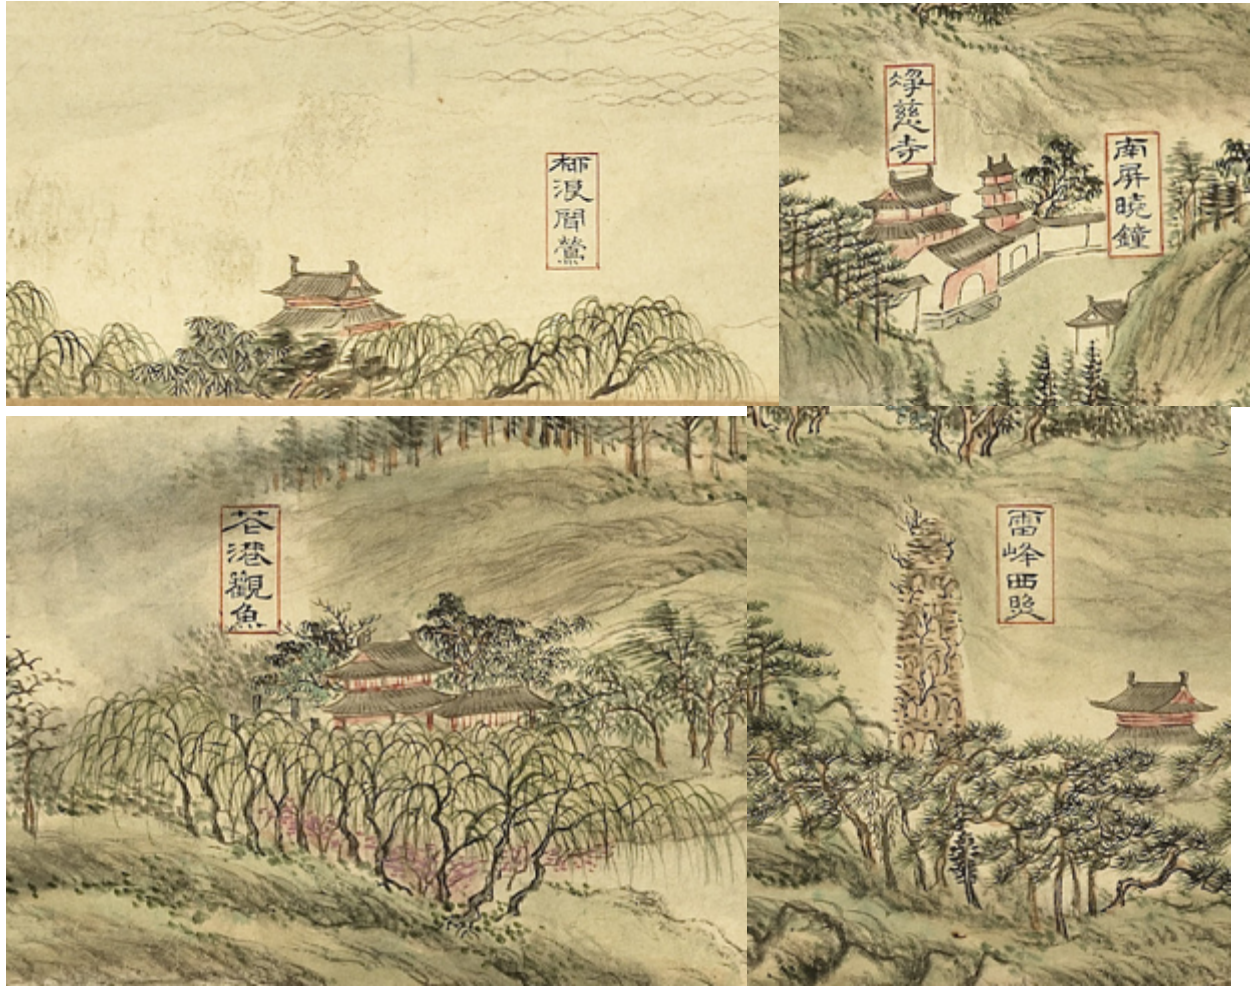 柳浪聞鶯
淨慈寺
南屏曉鐘
花港觀魚
雷峰西照